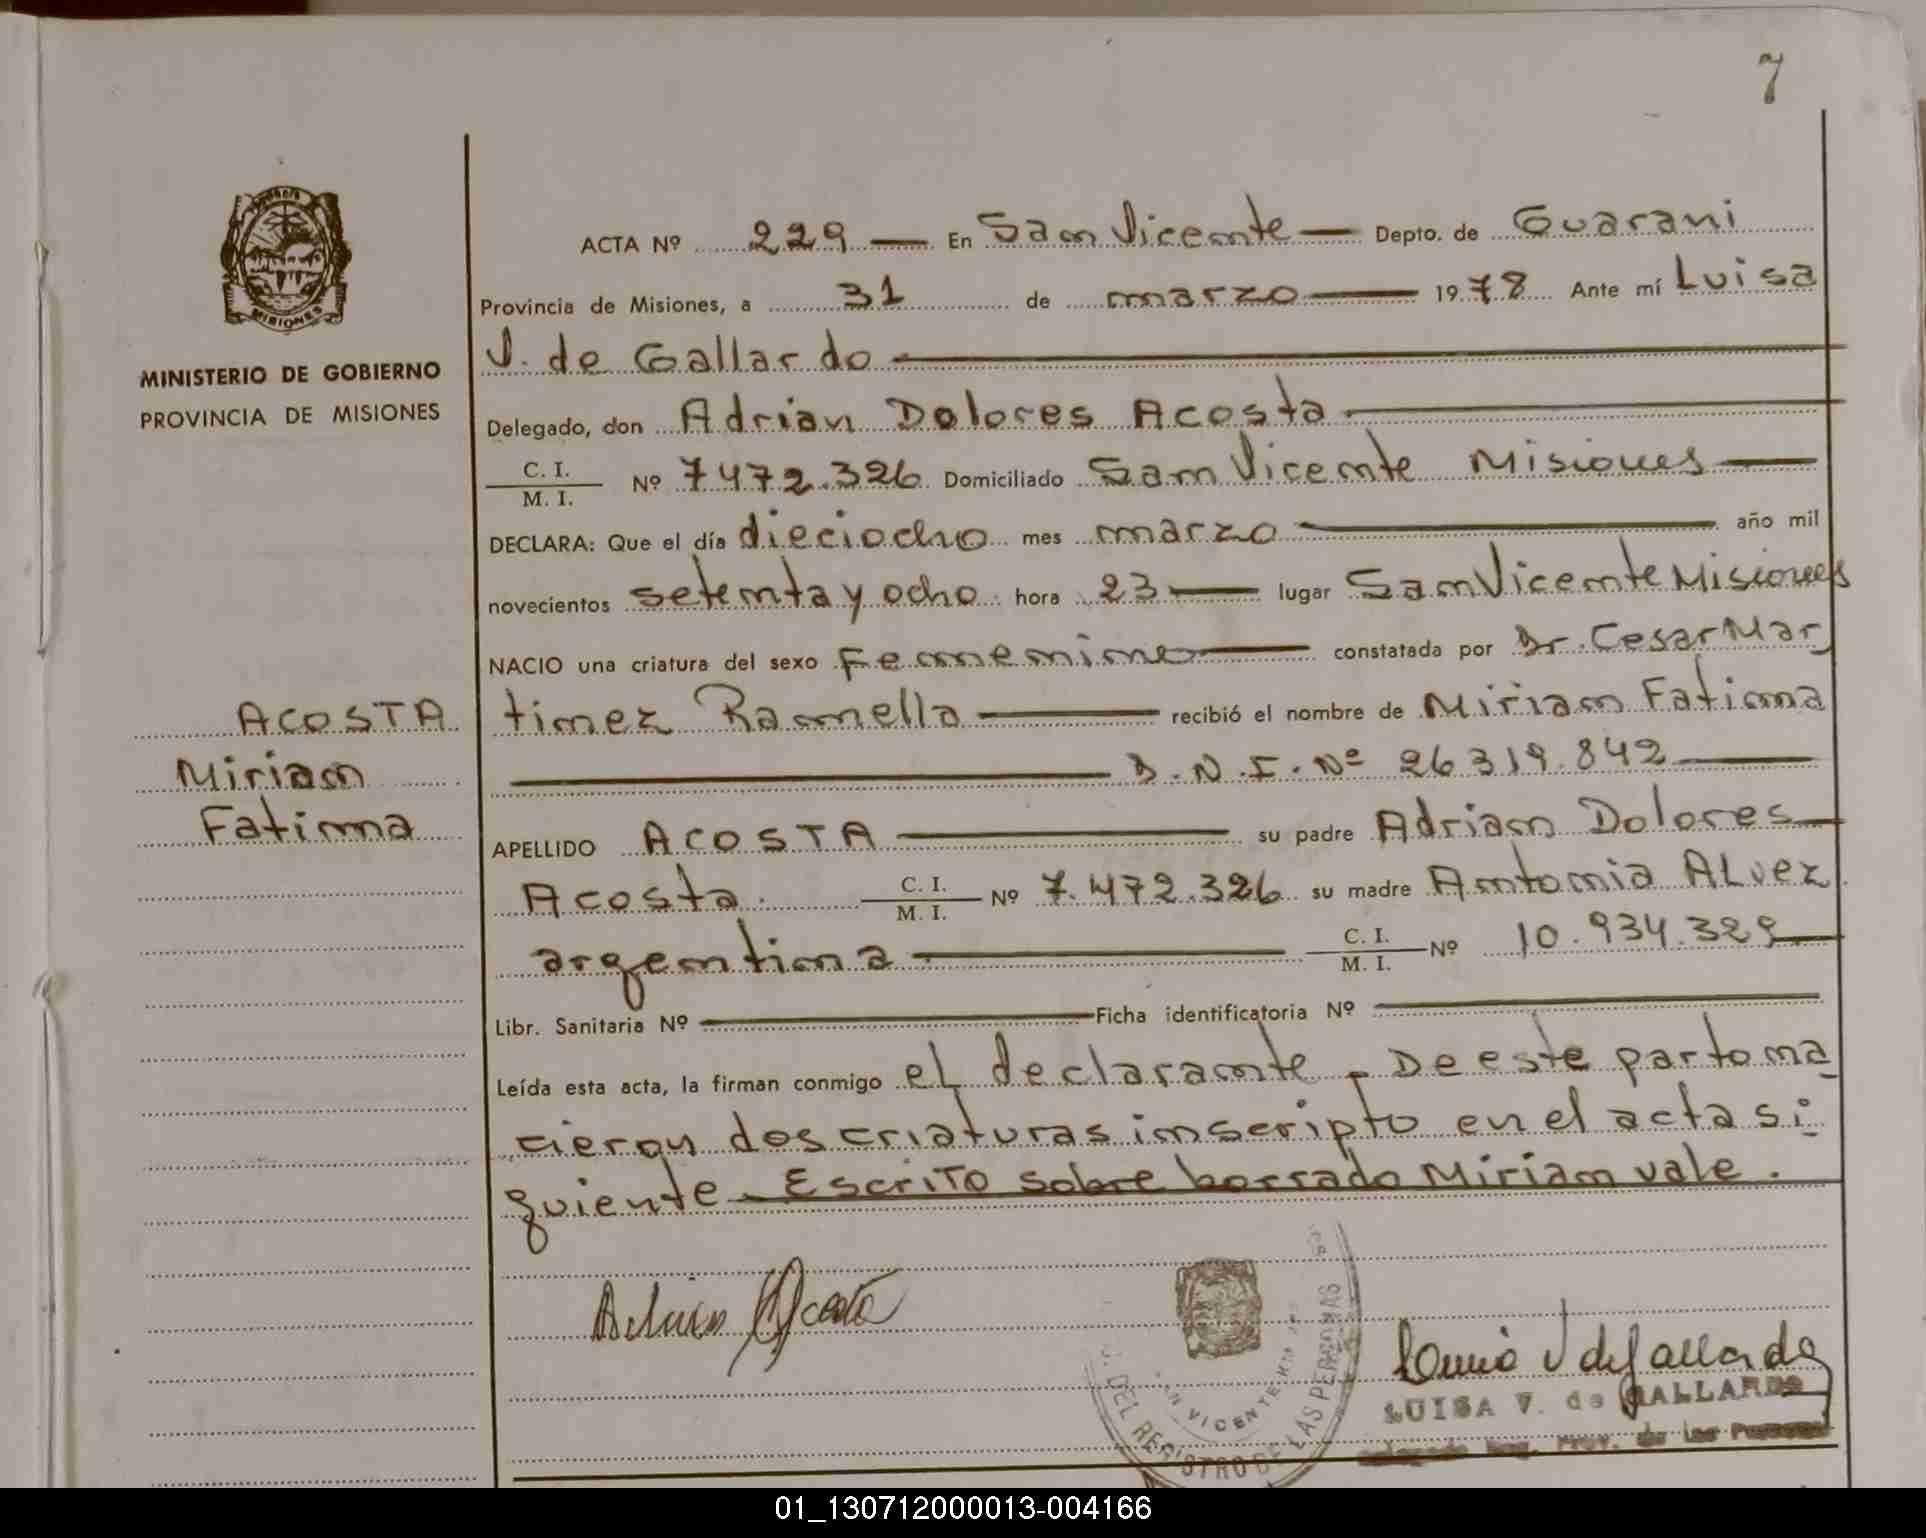 7
MISIONES
MINISTERIO DE GOBIERNO
PROVINCIA DE MISIONES
ACOSTA
Miriam
Fatima
ACTA Nº 229 — En San Vicente — Depto. de Guarani
Provincia de Misiones, a 31 de marzo — 1978 Ante mí Luisa
V. de Gallardo —
Delegado, don Adrian Dolores Acosta —
C. I. / M. I. Nº 7472.326 Domiciliado San Vicente Misiones —
DECLARA: Que el día dieciocho mes marzo — año mil
novecientos setenta y ocho hora 23 — lugar San Vicente Misiones
NACIO una criatura del sexo Femenino — constatada por Dr. Cesar Mar
tinez Ramella — recibió el nombre de Miriam Fatima
— D.N.I. Nº 26319.842 —
APELLIDO ACOSTA — su padre Adrian Dolores
Acosta. C. I. / M. I. Nº 7.472.326 su madre Antonia ALvez
argentina — C. I. / M. I. Nº 10.934.329
Libr. Sanitaria Nº — Ficha identificatoria Nº —
Leída esta acta, la firman conmigo el declarante - De este parto na
cieron dos criaturas inscripto en el acta si
guiente - Escrito sobre borrado Miriam vale.
Adrian Acosta
Luisa V de Gallardo
LUISA V. de GALLARDO
DEL REGISTRO DE LAS PERSONAS
VICENTE
01_130712000013-004166